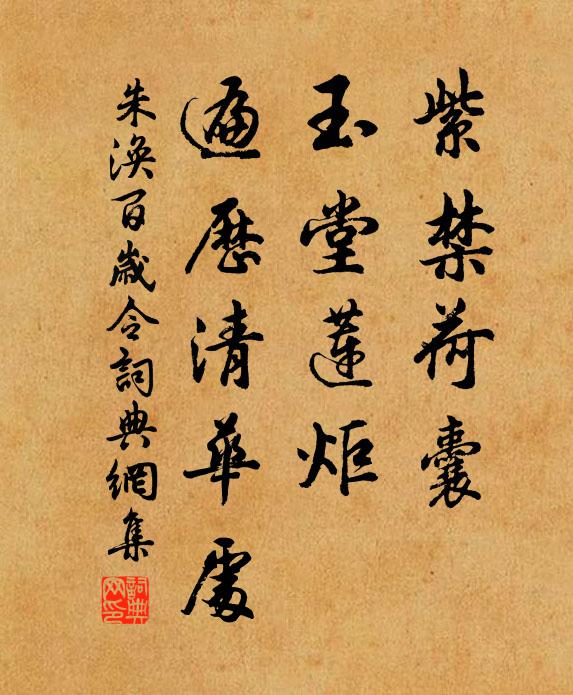 紫禁荷囊
玉堂蓮炬
遍歷清華處
朱渙百歲令詞典網集
詞典网印